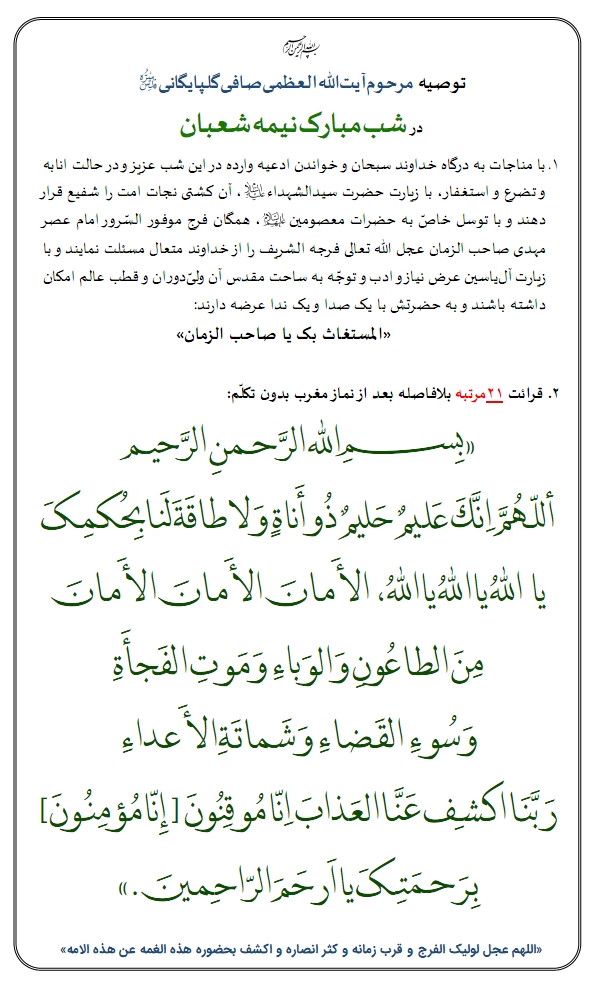 بسم الله الرحمن الرحیم
توصیه مرحوم آیت‌الله العظمی صافی گلپایگانی قدس‌سره
در شب مبارک نیمه شعبان
۱. با مناجات به درگاه خداوند سبحان و خواندن ادعیه وارده در این شب عزیز و در حالت انابه
و تضرع و استغفار، با زیارت حضرت سیدالشهداء علیه‌السلام، آن کشتی نجات امت را شفیع قرار
دهند و با توسل خاصّ به حضرات معصومین علیهم‌السلام، همگان فرج موفور السّرور امام عصر
مهدی صاحب الزمان عجل الله تعالی فرجه الشریف را از خداوند متعال مسئلت نمایند و با
زیارت آل‌یاسین عرض نیاز و ادب و توجّه به ساحت مقدس آن ولیّ‌دوران و قطب عالم امکان
داشته باشند و به حضرتش با یک صدا و یک ندا عرضه دارند:
«المستغاث بک یا صاحب الزمان»
۲. قرائت ۲۱مرتبه بلافاصله بعد از نماز مغرب بدون تکلّم:
«بِسمِ اللهِ الرَّحمنِ الرَّحیم
أللّهُمَّ اِنَّکَ عَلیمٌ حَلیمٌ ذُو أَناةٍ وَلا طاقَةَ لَنا بِحُکمِکَ
یا اللهُ یا اللهُ یا اللهُ، الأَمانَ الأَمانَ الأَمانَ
مِنَ الطاعُونِ وَالوَباءِ وَمَوتِ الفَجأَةِ
وَسُوءِ القَضاءِ وَشَماتَةِ الأَعداءِ
رَبَّنَا اکشِف عَنَّا العَذابَ اِنّا مُوقِنُونَ [إِنّا مُؤمِنُونَ]
بِرَحمَتِکَ یا اَرحَمَ الرّاحِمینَ.»
«اللهم عجل لولیک الفرج و قرب زمانه و کثر انصاره و اکشف بحضوره هذه الغمه عن هذه الامه»